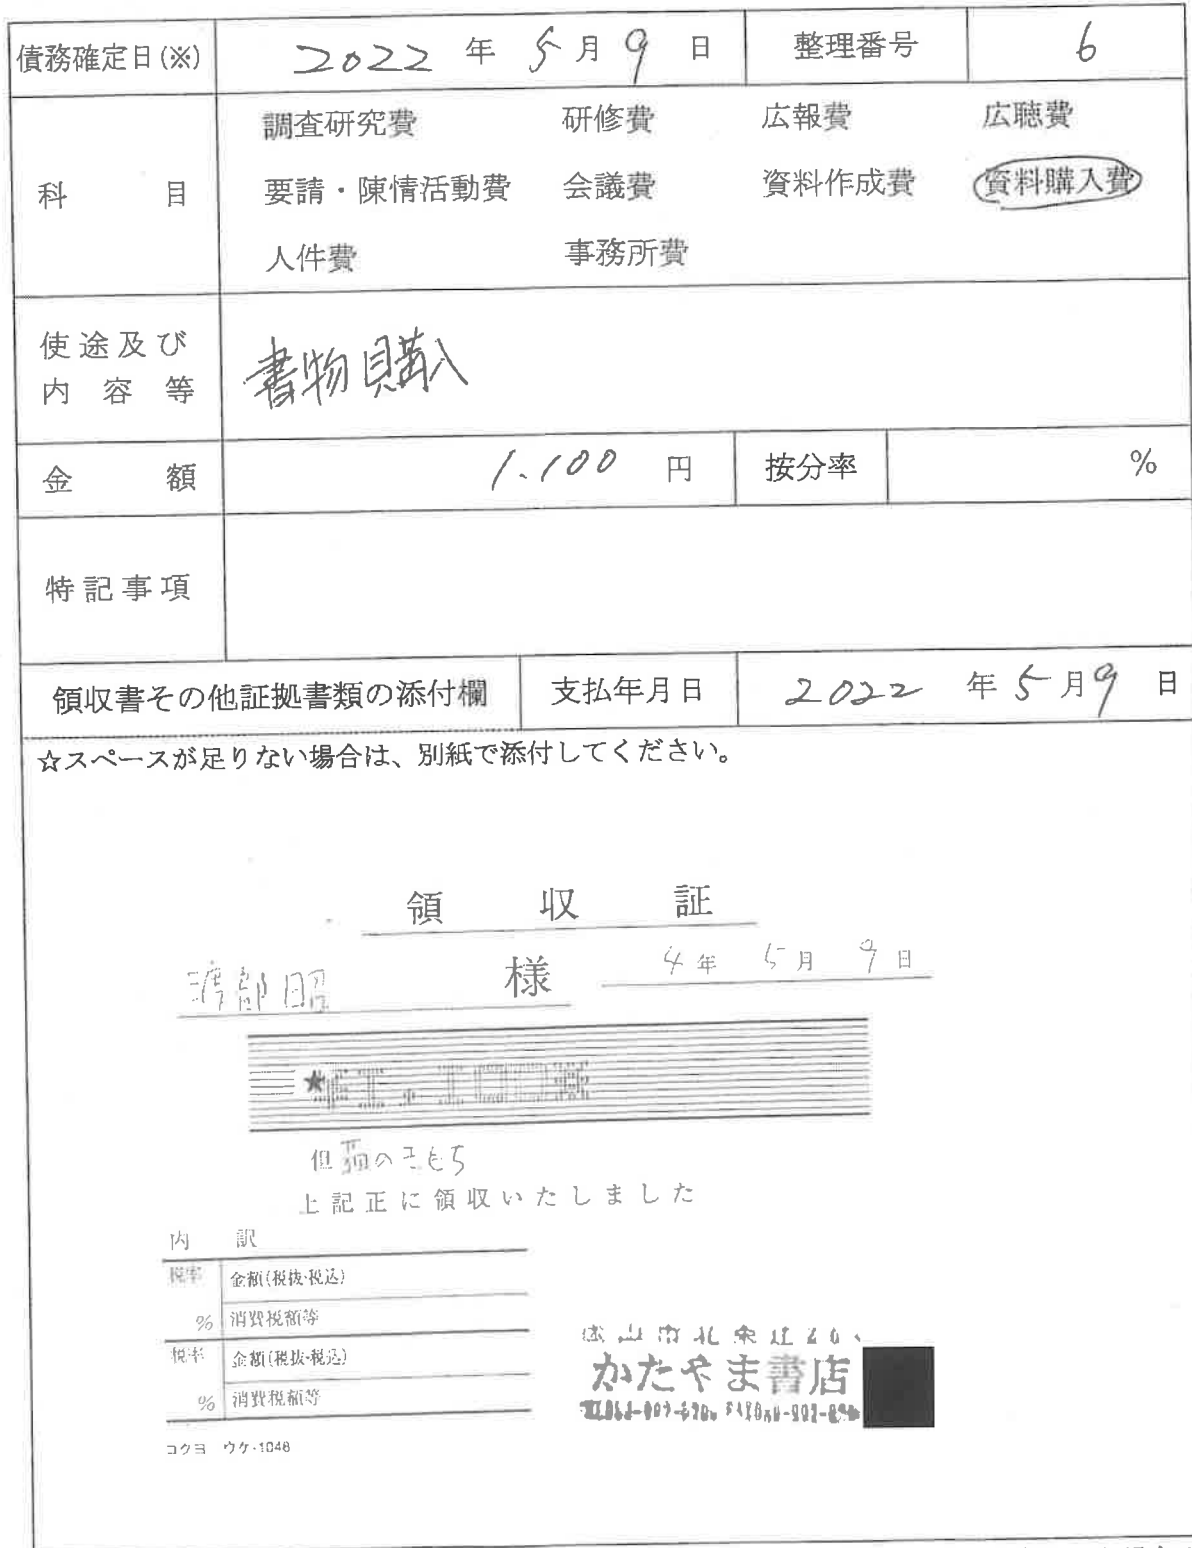 債務確定日(※) 2022 年 5 月 9 日 整理番号 6
調査研究費 研修費 広報費 広聴費
科 目 要請・陳情活動費 会議費 資料作成費 資料購入費
人件費 事務所費
使途及び
内容等
書物購入
金 額 1.100 円 按分率 %
特記事項
領収書その他証拠書類の添付欄 支払年月日 2022 年 5 月 9 日
☆スペースが足りない場合は、別紙で添付してください。
領 収 証
渡部昭 様 4 年 5 月 9 日
★¥1,100※
但 猫のきもち
上記正に領収いたしました
内 訳
税率 金額(税抜・税込)
% 消費税額等
税率 金額(税抜・税込)
% 消費税額等
かたやま書店
コクヨ ウケ-1048